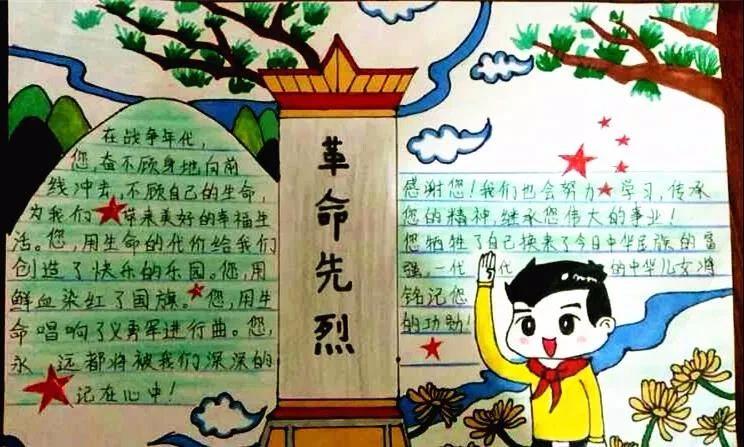 在战争年代，
您，奋不顾身地向前
线冲击，不顾自己的生命，
为我们带来美好的幸福生
活。您，用生命的代价给我们
创造了快乐的乐园。您，用
鲜血染红了国旗。您，用生
命唱响了义勇军进行曲。您，
永远都将被我们深深的
记在心中！
革命先烈
感谢您！我们也会努力学习，传承
您的精神，继承您伟大的事业！
您牺牲了自己换来了今日中华民族的富
强，一代代的中华儿女将
铭记您
的功勋！